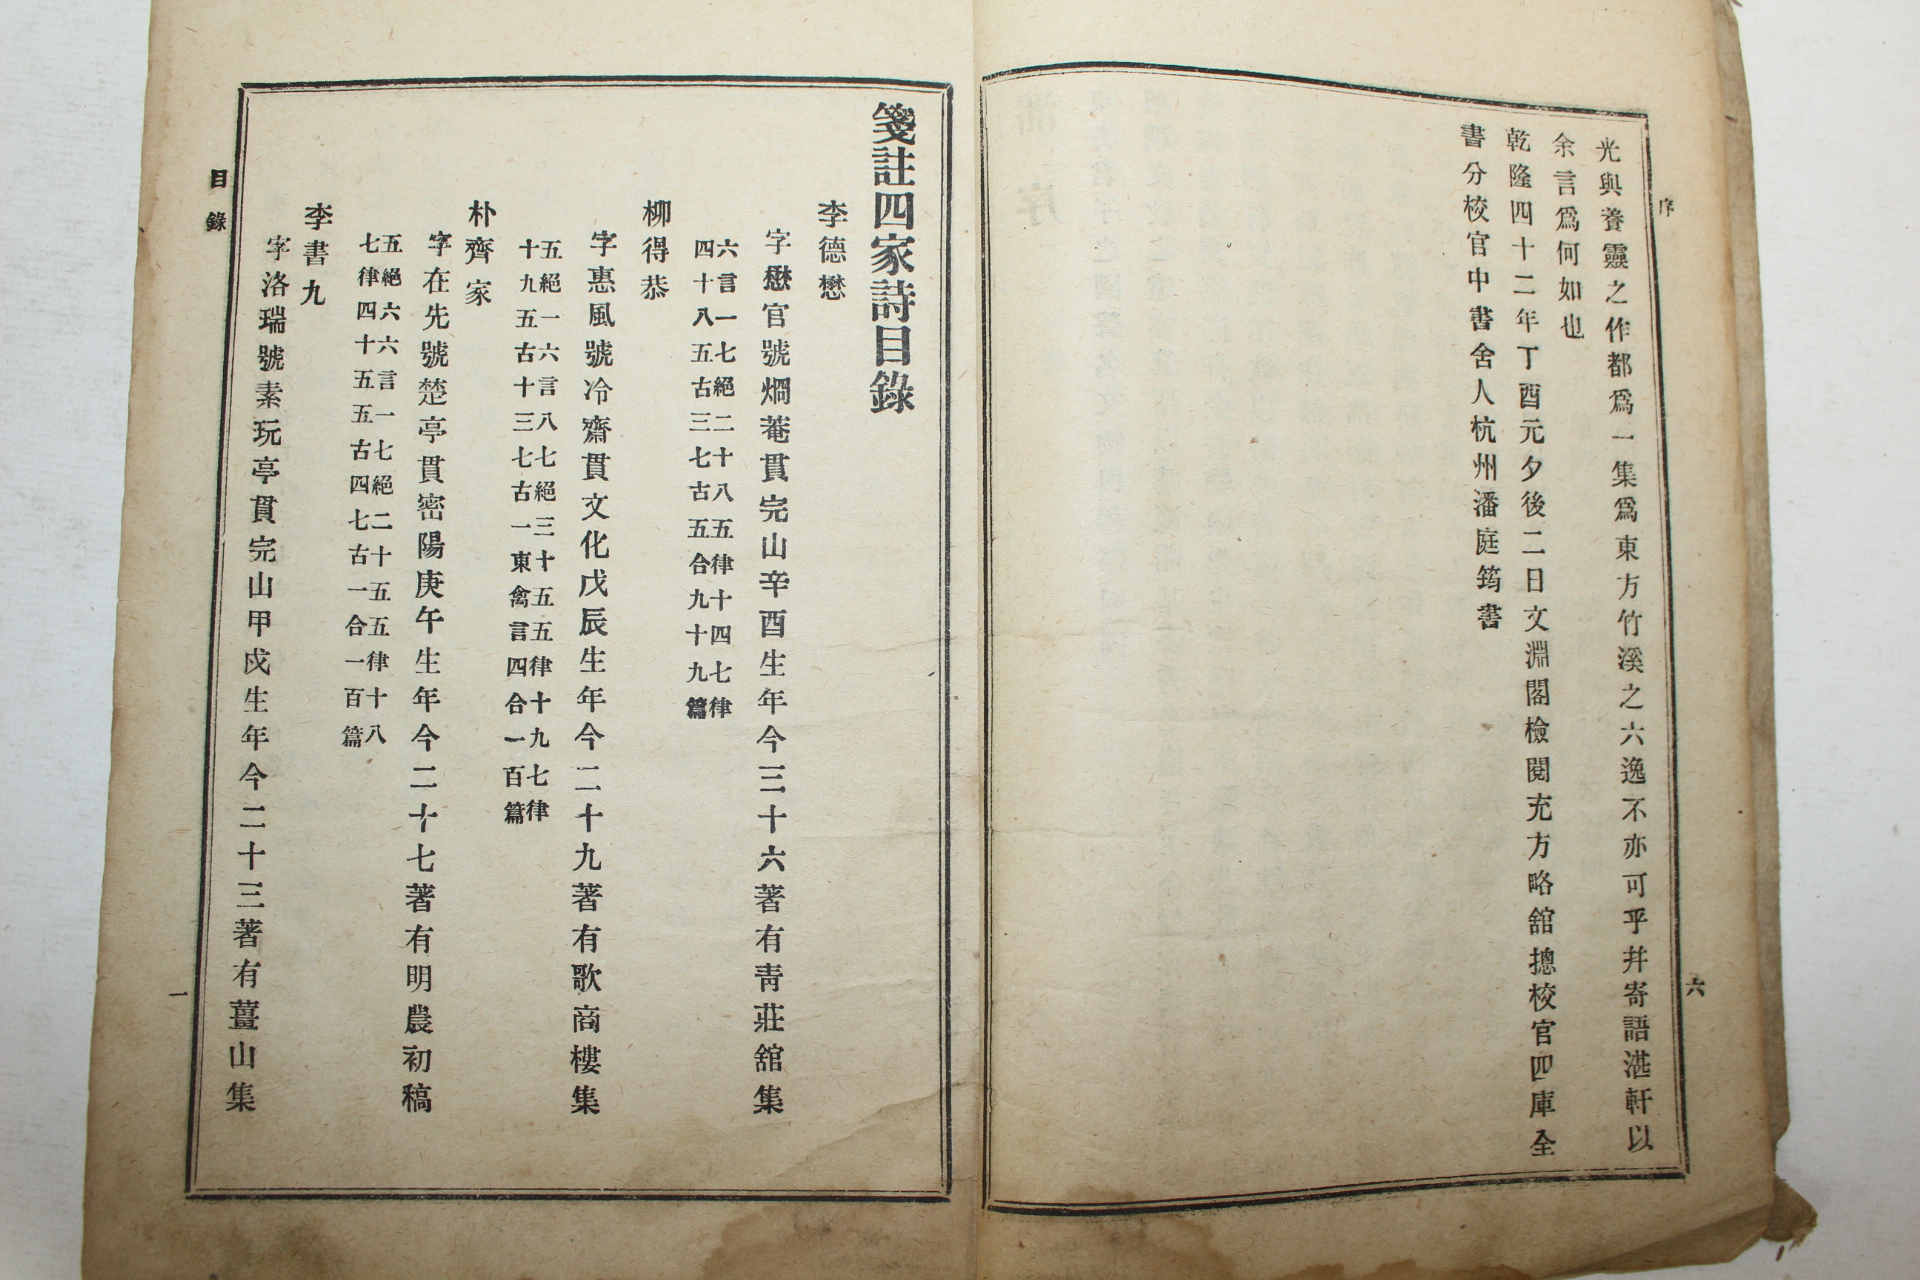 序
光與養靈之作都爲一集爲東方竹溪之六逸不亦可乎幷寄語湛軒以
余言爲何如也
乾隆四十二年丁酉元夕後二日文淵閣檢閱充方略舘摠校官四庫全
書分校官中書舍人杭州潘庭筠書
六
箋註四家詩目錄
李德懋
字懋官號烱菴貫完山辛酉生年今三十六著有靑莊舘集
六言一七絕二十八五律十四七律
四十八五古三七古五合九十九篇
柳得恭
字惠風號冷齋貫文化戊辰生年今二十九著有歌商樓集
五絕一六言八七絕三十五五律十九七律
十九五古十三七古一東禽言四合一百篇
朴齊家
字在先號楚亭貫密陽庚午生年今二十七著有明農初稿
五絕六六言一七絕二十五五律十八
七律四十五五古四七古一合一百篇
李書九
字洛瑞號素玩亭貫完山甲戌生年今二十三著有薑山集
目錄
一